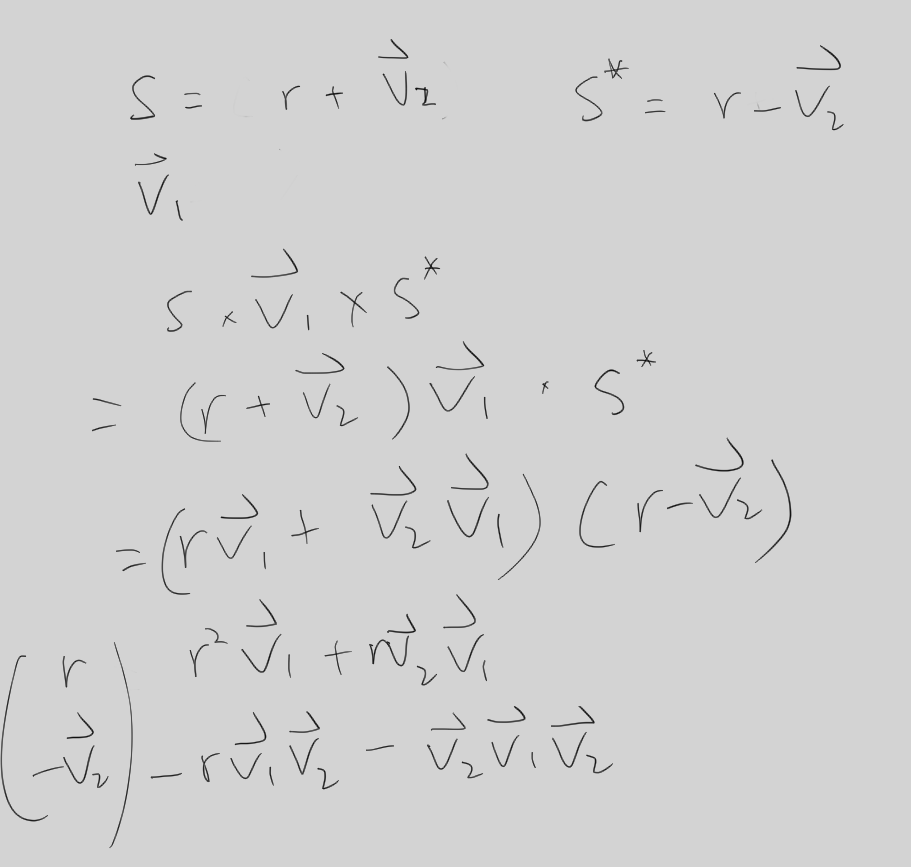 S = r + \vec{V}_2    S^* = r - \vec{V}_2
\vec{V}_1
S × \vec{V}_1 × S^*
= (r + \vec{V}_2) \vec{V}_1 · S^*
= (r\vec{V}_1 + \vec{V}_2 \vec{V}_1) (r - \vec{V}_2)
r^2 \vec{V}_1 + r\vec{V}_2 \vec{V}_1
\begin{pmatrix} r \\ -\vec{V}_2 \end{pmatrix} - r\vec{V}_1 \vec{V}_2 - \vec{V}_2 \vec{V}_1 \vec{V}_2